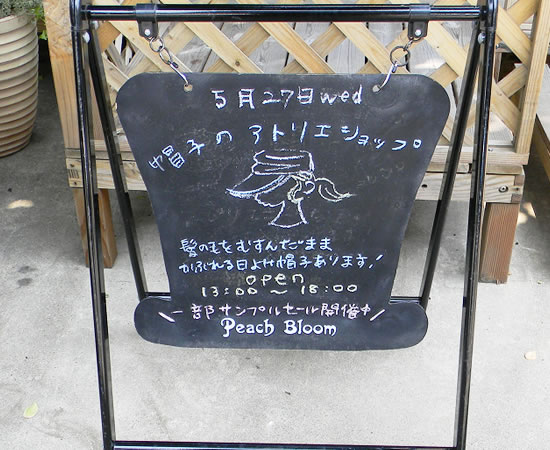 5月27日wed
帽子のアトリエショップ
髪の毛をむすんだまま
かぶれる日よけ帽子あります!
open
13:00〜18:00
\一部サンプルセール開催中/
Peach Bloom